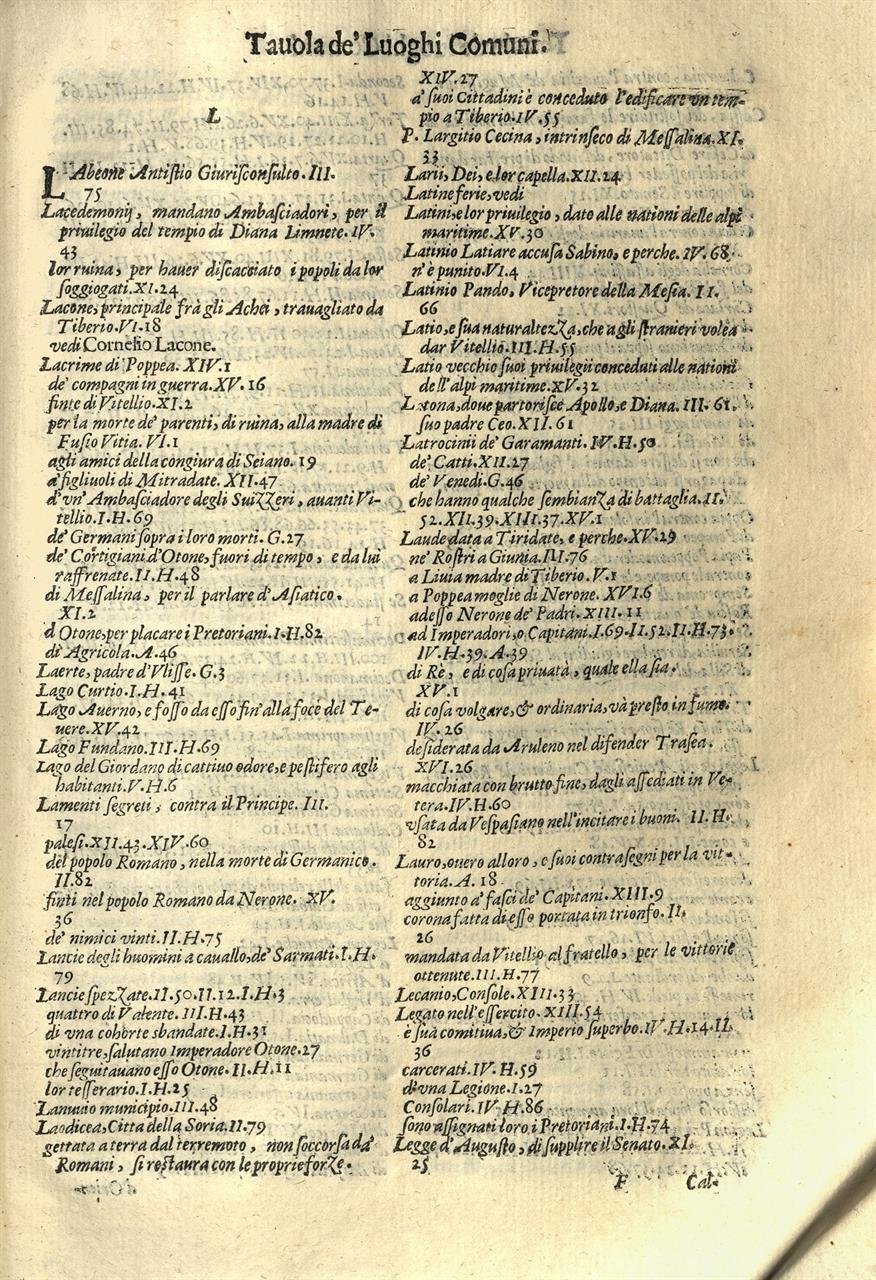 Tauola de' Luoghi Comuni.
L
LAbeone Antistio Giurisconsulto. III.
75
Lacedemonij, mandano Ambasciadori, per il
priuilegio del tempio di Diana Limnete. IV.
43
lor ruina, per hauer discacciato i popoli da lor
soggiogati. XI. 24
Lacone, principale frà gli Achei, trauagliato da
Tiberio. VI. 18
vedi Cornelio Lacone.
Lacrime di Poppea. XIV. 1
de' compagni in guerra. XV. 16
finte di Vitellio. XI. 2
per la morte de' parenti, di ruina, alla madre di
Fusio Vitia. VI. 1
agli amici della congiura di Seiano. 19
a' figliuoli di Mitradate. XII. 47
d'vn' Ambasciadore degli Suizzeri, auanti Vi-
tellio. I. H. 69
de' Germani sopra i loro morti. G. 27
de' Cortigiani d'Otone, fuori di tempo, e da lui
raffrenate. II. H. 48
di Messalina, per il parlare d' Asiatico.
XI. 2
d Otone, per placare i Pretoriani. I. H. 82
di Agricola. A. 46
Laerte, padre d'Vlisse. G. 3
Lago Curtio. I. H. 41
Lago Auerno, e fosso da esso fin' alla foce del Te-
uere. XV. 42
Lago Fundano. III. H. 69
Lago del Giordano di cattiuo odore, e pestifero agli
habitanti. V. H. 6
Lamenti segreti, contra il Principe. III.
17
palesi. XII. 43. XIV. 60
del popolo Romano, nella morte di Germanico.
II. 82
finti nel popolo Romano da Nerone. XV.
36
de' nimici vinti. II. H. 75
Lancie degli huomini a cauallo, de' Sarmati. I. H.
79
Lancie spezzate. II. 50. II. 12. I. H. 3
quattro di Valente. III. H. 43
di vna cohorte sbandate. I. H. 31
vintitre, salutano Imperadore Otone. 27
che seguitauano esso Otone. II. H. 11
lor tesserario. I. H. 25
Lanuuio municipio. III. 48
Laodicea, Citta della Soria. II. 79
gettata a terra dal terremoto, non soccorsa da'
Romani, si restaura con le proprie forze.
XIV. 27
a' suoi Cittadini è conceduto l'edificare vn tem-
pio a Tiberio. IV. 55
P. Largitio Cecina, intrinseco di Messalina. XI.
33
Larii, Dei, e lor capella. XII. 24
Latine ferie, vedi
Latini, e lor priuilegio, dato alle nationi delle alpi
maritime. XV. 30
Latinio Latiare accusa Sabino, e perche. IV. 68
n' è punito. VI. 4
Latinio Pando, Vicepretore della Mesia. II.
66
Latio, e sua naturaltezza, che agli stranieri volea
dar Vitellio. III. H. 55
Latio vecchio suoi priuilegii conceduti alle nationi
dell'alpi maritime. XV. 32
Latona, doue partorisce Apollo, e Diana. III. 61.
suo padre Ceo. XII. 61
Latrocinii de' Garamanti. IV. H. 50
de' Catti. XII. 27
de' Venedi. G. 46
che hanno qualche sembianza di battaglia. II.
52. XII. 39. XIII. 37. XV. 1
Laude data a Tiridate, e perche. XV. 29
ne' Rostri a Giunia. III. 76
a Liuia madre di Tiberio. V. 1
a Poppea moglie di Nerone. XVI. 6
adesso Nerone de' Padri. XIII. 11
ad Imperadori, o Capitani. I. 69. II. 52. II. H. 73.
IV. H. 39. A. 39
di Rè, e di cosa priuata, quale ella sia.
XV. 1
di cosa volgare, & ordinaria, và presto in fumo.
IV. 26
desiderata da Aruleno nel difender Trasea.
XVI. 26
macchiata con brutto fine, dagli assediati in Ve-
tera. IV. H. 60
vsata da Vespasiano nell'incitare i buoni. II. H.
82
Lauro, ouero alloro, e suoi contrasegni per la vit-
toria. A. 18
aggiunto a' fasci de' Capitani. XIII. 9
corona fatta di esso portata in trionfo. II.
26
mandata da Vitellio al fratello, per le vittorie
ottenute. III. H. 77
Lecanio, Console. XIII. 33
Legato nell'essercito. XIII. 54
e suà comitiua, & Imperio superbo. IV. H. 14. II.
36
carcerati. IV. H. 59
d'vna Legione. I. 27
Consolari. IV. H. 86
sono assignati loro i Pretoriani. I. H. 74
Legge d' Augusto, di supplire il Senato. XI.
25
F
Cal-